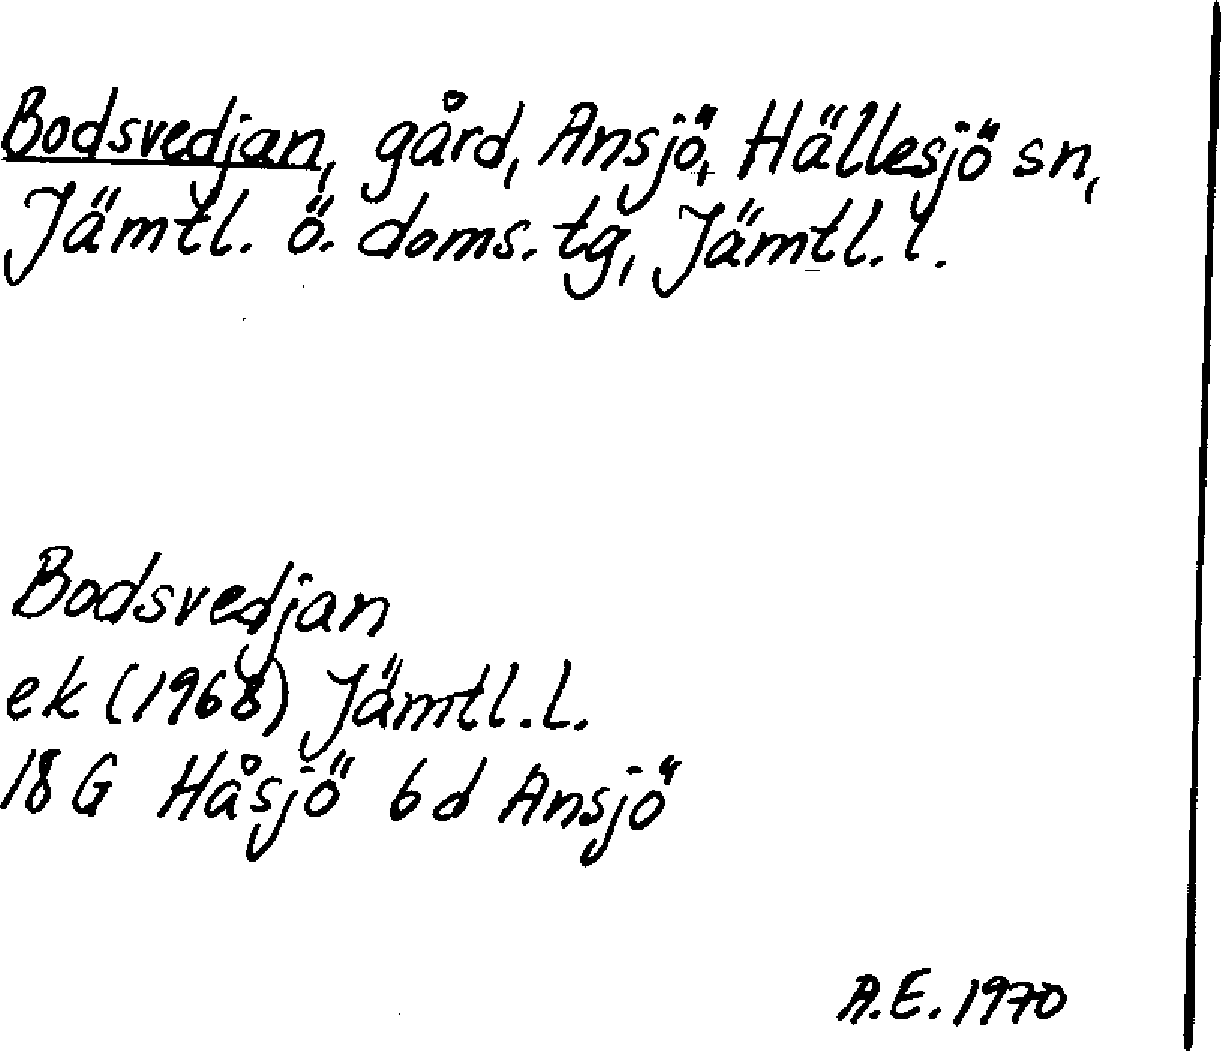 Bodsvedjan, gård, Ansjö, Hällesjö sn,
Jämtl. ö. doms. tg, Jämtl. l.
Bodsvedjan
ek (1968) Jämtl. l.
18 G Håsjö 6 d Ansjö
A.E. 1970